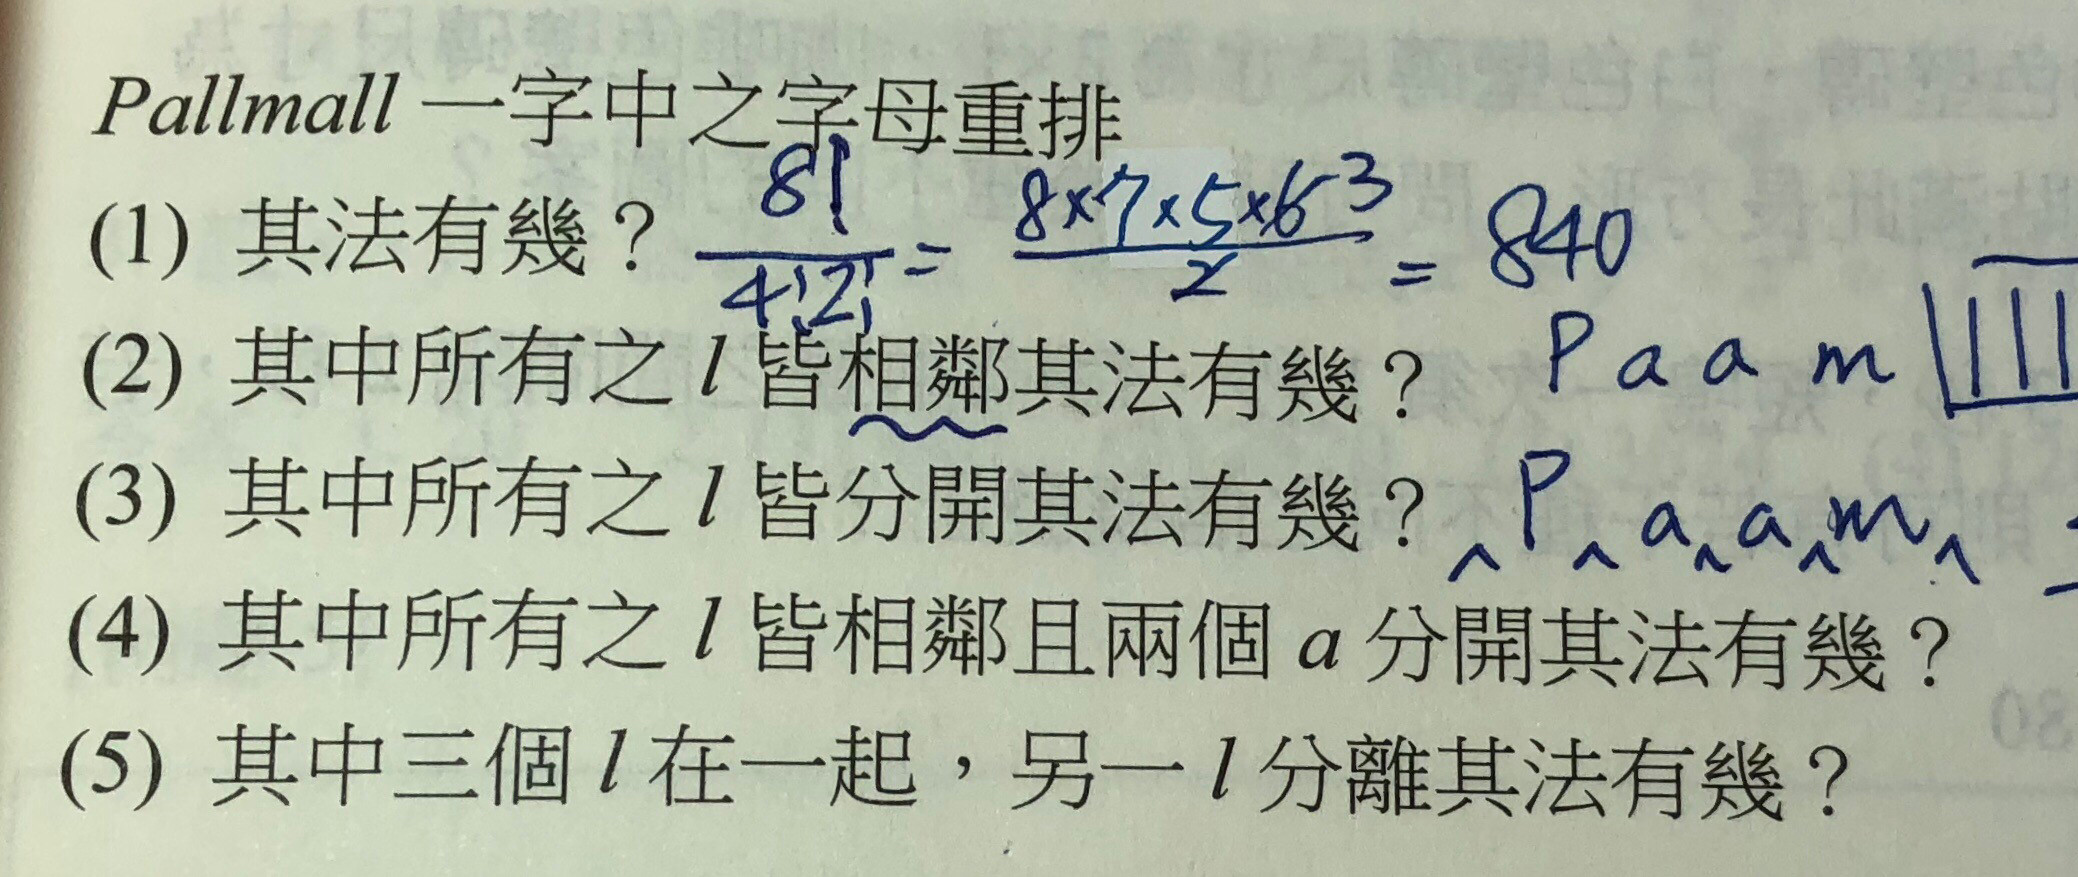 Pallmall 一字中之字母重排
(1) 其法有幾？ 8!/4!2! = 8×7×5×6 3/2 = 840
(2) 其中所有之 l 皆相鄰其法有幾？ P a a m
(3) 其中所有之 l 皆分開其法有幾？ ^ P ^ a ^ a ^ m ^
(4) 其中所有之 l 皆相鄰且兩個 a 分開其法有幾？
(5) 其中三個 l 在一起，另一 l 分離其法有幾？